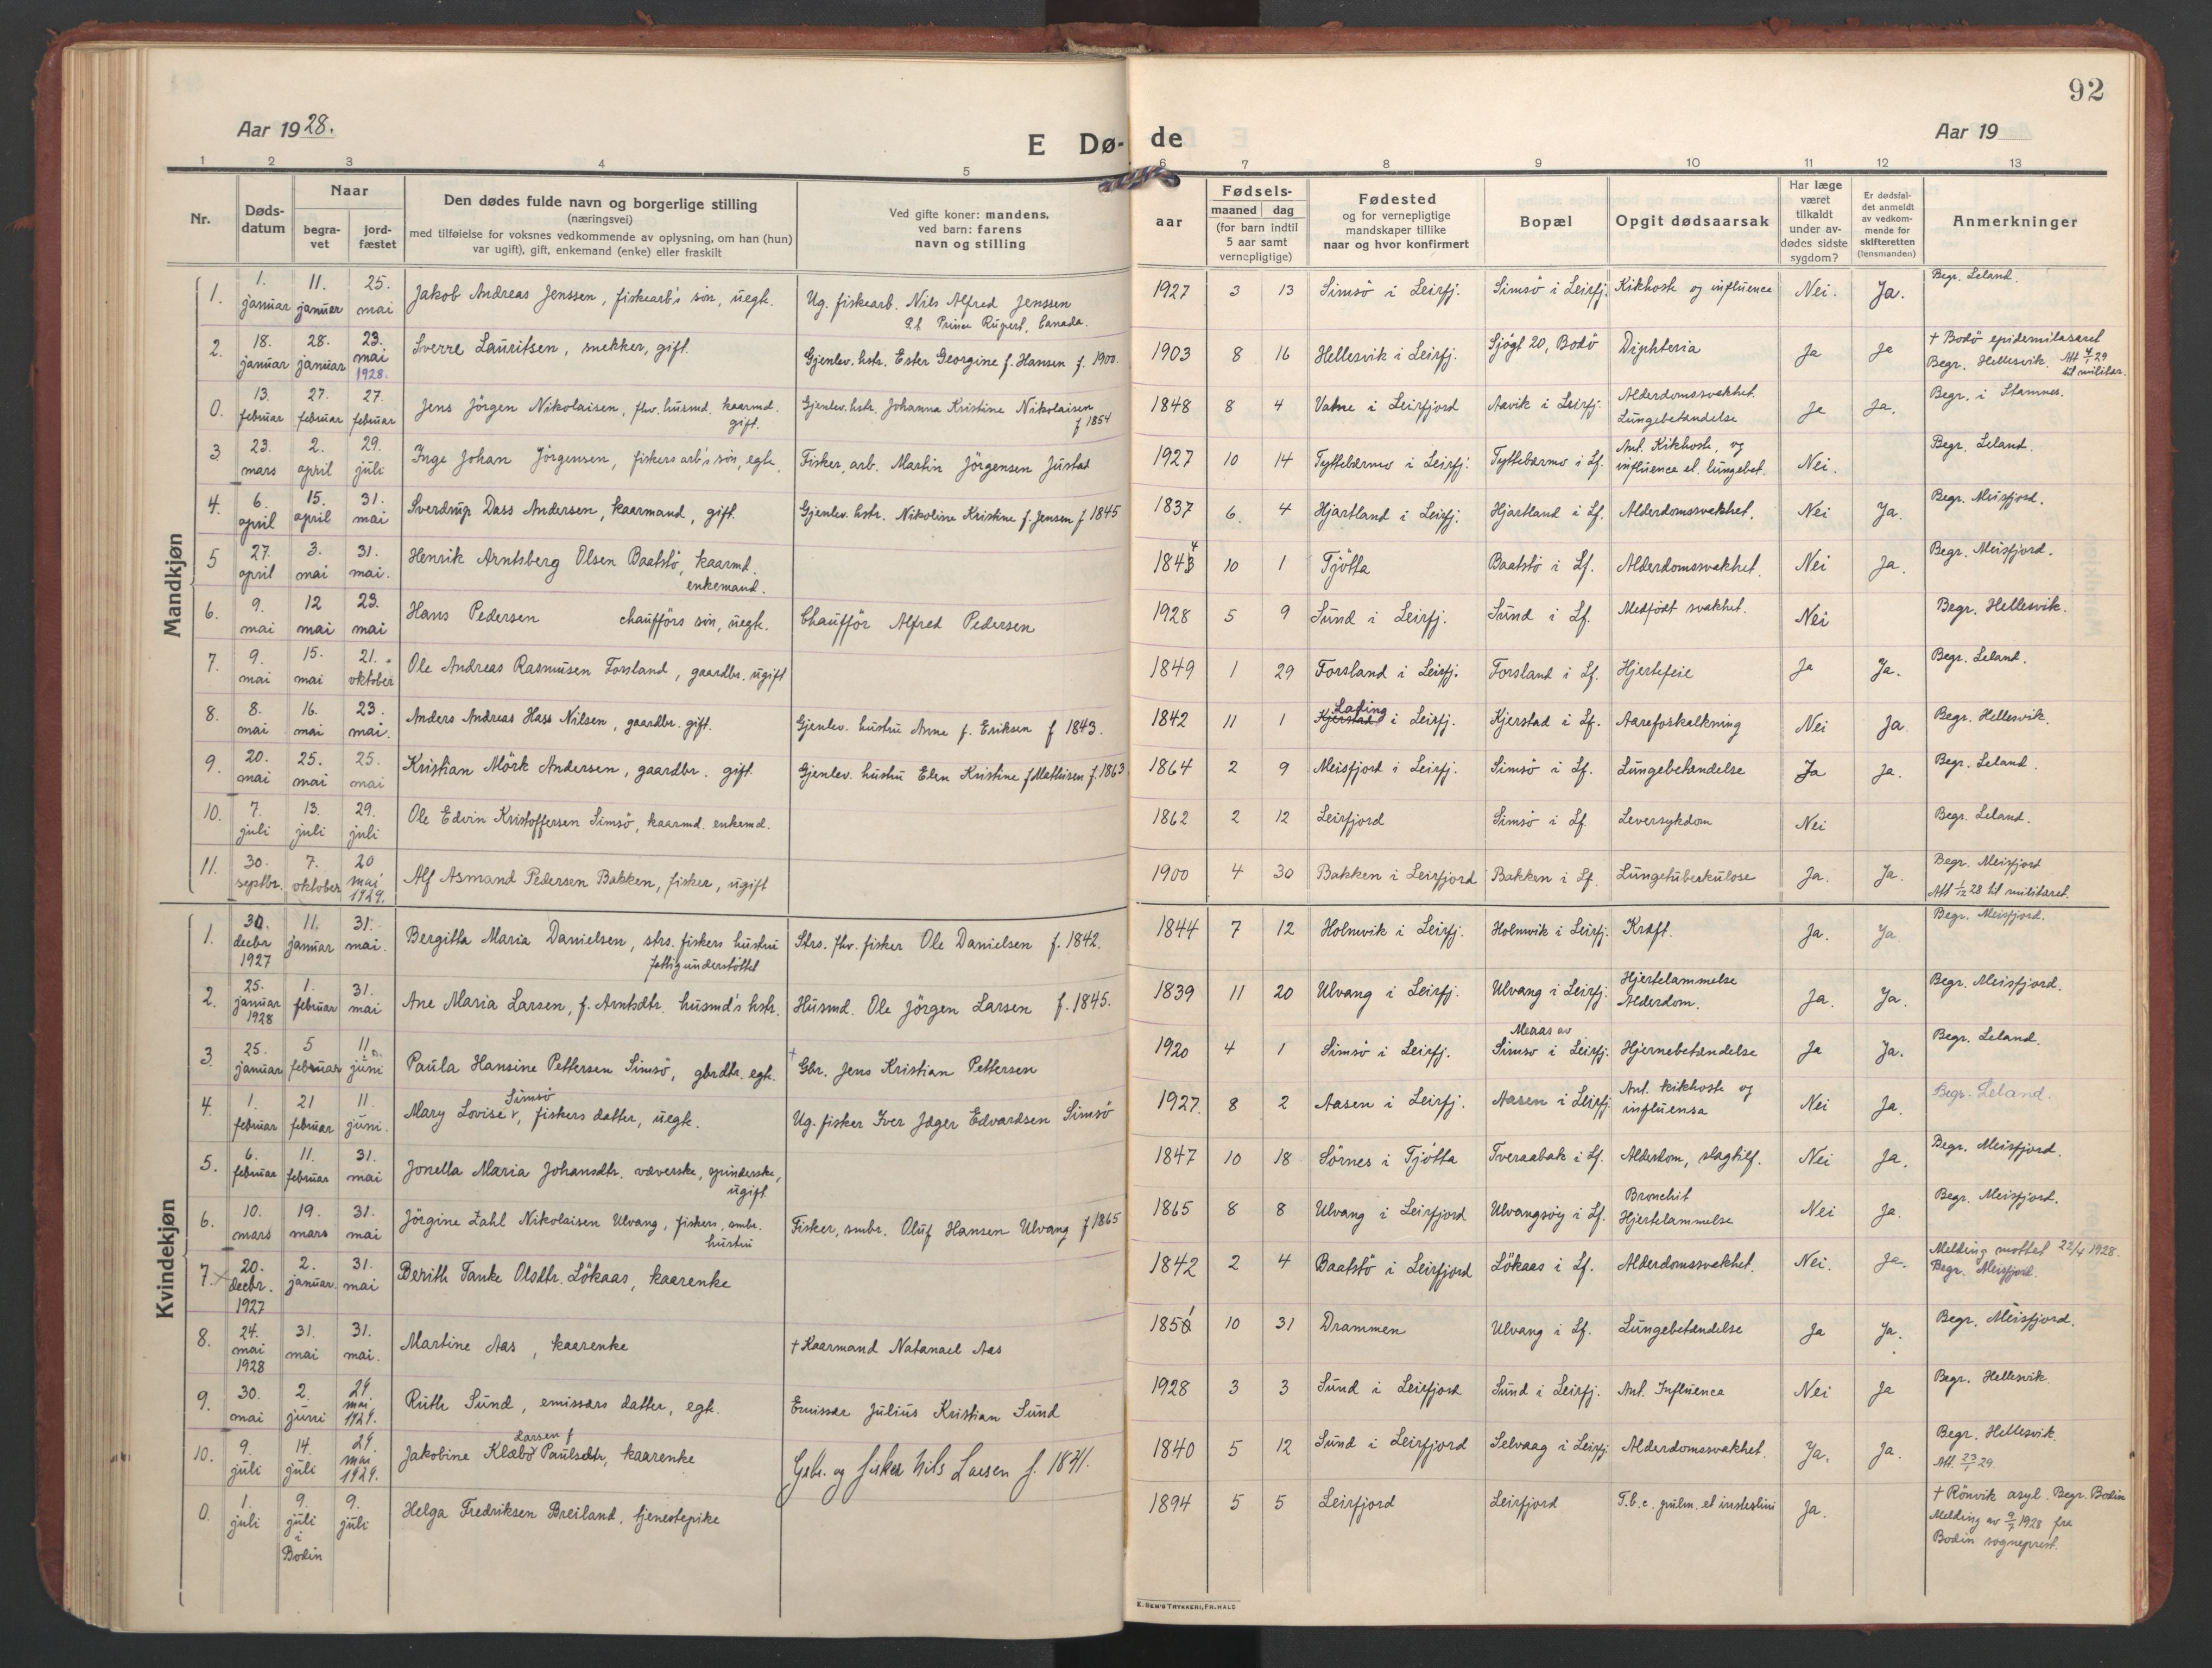 92
Aar 1928.
E Dø-de
Aar 19
1 2 3 4 5 6 7 8 9 10 11 12 13
Nr.
Døds-datum
Naar
begra-vet
jord-fæstet
Den dødes fulde navn og borgerlige stilling
(næringsvei)
med tilføielse for voksnes vedkommende av oplysning, om han (hun)
var ugift), gift, enkemand (enke) eller fraskilt
Ved gifte koner: mandens,
ved barn: farens
navn og stilling
Fødsels-
aar
maaned dag
(for barn indtil
5 aar samt
vernepligtige)
Fødested
og for vernepligtige
mandskaper tillike
naar og hvor konfirmert
Bopæl
Opgit dødsaarsak
Har læge
været
tilkaldt
under av-
dødes sidste
sygdom?
Er dødsfal-
det anmeldt
av vedkom-
mende for
skifteretten
(lensmanden)
Anmerkninger
Mandkjøn
1. 1. januar 11. januar 25. mai Jakob Andreas Jenssen, fiskearb's søn, uegte. Ug. fiskearb. Nils Alfred Jenssen 1927 3 13 Simsö i Leirfj. Simsö i Leirfj. Kikhoste og influence Nei. Ja. Begr. Leland.
P.t Prince Rupert, Canada.
2. 18. januar 28. januar 23. mai 1928. Sverre Lauritsen, snekker, gift. Gjenlev. hstr. Ester Georgine f. Hansen f. 1900. 1903 8 16 Hellesvik i Leirfj. Sjögt 20, Bodö Diphteria Ja Ja † Bodö epidemilasaret
Begr. Hellesvik. Att 4/1 29 til militær.
0. 13. februar 27. februar 27. februar Jens Jörgen Nikolaisen, fhv. husmd. kaarmd. gift. Gjenlev. hstr. Johanna Kristine Nikolaisen f 1854 1848 8 4 Vatne i Leirfjord Aavik i Leirfj. Alderdomssvakhet. Lungebetændelse Ja Ja. Begr. i Stamnes.
3 23. mars 2. april 29. juli Inge Johan Jörgensen, fiskers arb's søn, egte. Fisker, arb. Martin Jörgensen Justad 1927 10 14 Tyttebærmo i Leirfj. Tyttebærmo i Lf. Ant. Kikhoste, og influence el. lungebet. Nei. Begr. Leland.
4. 6. april 15. april 31. mai Sverdrup Dass Andersen, kaarmand, gift. Gjenlev. hstr. Nikoline Kristine f. Jensen f 1845 1837 6. 4 Hjartland i Leirfj. Hjartland i Lf. Alderdomssvakhet. Nei Ja. Begr. Meisfjord.
5 27. april 3. mai 31. mai. Henrik Arntsberg Olsen Baatstö, kaarmd. enkemand. 1843 4 10 1 Tjötta Baatstö i Lf. Alderdomssvakhet. Nei Ja. Begr. Meisfjord.
6. 9. mai 12 mai 23. mai Hans Pedersen chaufförs søn, uegte. Chaufför Alfred Pedersen 1928 5 9 Sund i Leirfj. Sund i Lf. Medfödt svakhet. Nei Begr. Hellesvik.
7. 9. mai 15. mai 21. oktober Ole Andreas Rasmusen Forsland, gaardbr. ugift 1849 1 29 Forsland i Leirfj. Forsland i Lf. Hjertefeie Ja Ja. Begr. Leland.
8. 8. mai 16. mai 23. mai. Anders Andreas Hass Nilsen, gaardbr. gift. Gjenlev. hustru Anne f. Eriksen f 1843. 1842 11 1 Kjerstad Lating i Leirfj. Kjerstad i Lf. Aareforkalkning Nei Ja Begr. Hellesvik.
9. 20. mai 25. mai 25. mai Kristian Mörk Andersen, gaardbr. gift. Gjenlev. hustru Elen Kristine f Mathisen f. 1863 1864 2 9 Meisfjord i Leirfj. Simsö i Lf. Lungebetændelse Ja Ja. Begr. Leland.
10. 7. juli 13. juli 29. juli Ole Edvin Kristoffersen Simsö, kaarmd. enkemd. 1862 2 12 Leirfjord Simsö i Lf. Leversykdom Nei Begr. Leland.
11. 30. septbr. 7. oktober 20 mai 1929. Alf Asmand Pedersen Bakken, fisker, ugift 1900 4 30 Bakken i Leirfjord Bakken i Lf. Lungetuberkulose Ja. Ja. Begr. Meisfjord
Att 1/12 28 til militæret.
Kvindekjøn
1. 30. decbr 1927 11. januar 31. mai. Bergitta Maria Danielsen, strs. fiskers hustru fattigunderstöttet Strs. fhv. fisker Ole Danielsen f. 1842. 1844 7 12 Holmvik i Leirfj. Holmvik i Leirfj. Kræft. Ja. Ja Begr. Meisfjord.
2. 25. januar 1928 1. februar 31. mai Ane Maria Larsen, f. Arntsdtr. husmd's hstr. Husmd. Ole Jörgen Larsen f. 1845. 1839 11 20 Ulvang i Leirfj. Ulvang i Leirfj. Hjertelammelse Alderdom. Ja. Ja. Begr. Meisfjord.
3 25. januar 5 februar 11. juni Paula Hansine Pettersen Simsö, gbrdtr. egte. † Gbr. Jens Kristian Pettersen 1920 4 1 Simsö i Leirfj. Meaas av Simsö i Leirfj. Hjernebetændelse Ja Ja. Begr. Leland.
4. 1. februar 21 februar 11. juni. Mary Lovise Simsö, fiskers datter, uegte. Ug. fisker Iver Jæger Edvardsen Simsö 1927. 8 2 Aasen i Leirfj. Aasen i Leirfj Ant. kikhoste og influensa Nei Ja. Begr. Leland.
5. 6. februar 11. februar 31. mai Jonella Maria Johansdtr. væverske, spinderske, ugift 1847 10 18 Sörnes i Tjötta Tveraabak i Lf. Alderdom, slagtilf. Nei Ja. Begr. Meisfjord.
6. 10. mars 19. mars 31. mai Jörgine Zahl Nikolaisen Ulvang, fiskers, smbr. hustru Fisker, smbr. Oluf Hansen Ulvang f 1865 1865 8 8 Ulvang i Leirfjord Ulvangsöy i Lf. Bronchit Hjertelammelse Nei Ja. Begr. Meisfjord.
7. 20. decbr. 1927 2. januar. 31. mai Berith Tanke Olsdtr. Lökaas, kaarenke 1842 2 4 Baatstö i Leirfjord Lökaas i Lf. Alderdomssvakhet. Nei. Ja. Melding mottet 22/4 1928.
Begr. Meisfjord.
8. 24. mai 1928 31. mai 31. mai. Martine Aas, kaarenke † Kaarmand Natanael Aas 1850 1 10 31 Drammen Ulvang i Lf. Lungebetændelse Ja Ja. Begr. Meisfjord.
9. 30. mai 2. juni 29. mai 1929. Ruth Sund, emissærs datter, egte. Emissær Julius Kristian Sund 1928 3 3 Sund i Leirfjord Sund i Leirfj. Ant. Influence Nei Ja Begr. Hellesvik.
10. 9. juli 14. juli 29. mai 1929. Jakobine Klæbo Larsen f Paulsdtr, kaarenke Gbr. og fisker Nils Larsen f. 1841. 1840 5 12 Sund i Leirfjord Selvaag i Leirfj Alderdomssvakhet. Ja. Ja. Begr. Hellesvik.
Att. 23/1 29.
0. 1. juli 9. juli i Bodin 9. juli Helga Fredriksen Breiland, tjenestepike 1894 5 5 Leirfjord Leirfjord T.b.c. pulm. et intestini Ja. † Rönvik asyl. Begr. Bodin
Melding av 9/7 1928 fra
Bodin sogneprest.
E. SEM'S TRYKKERI, FR.HALD